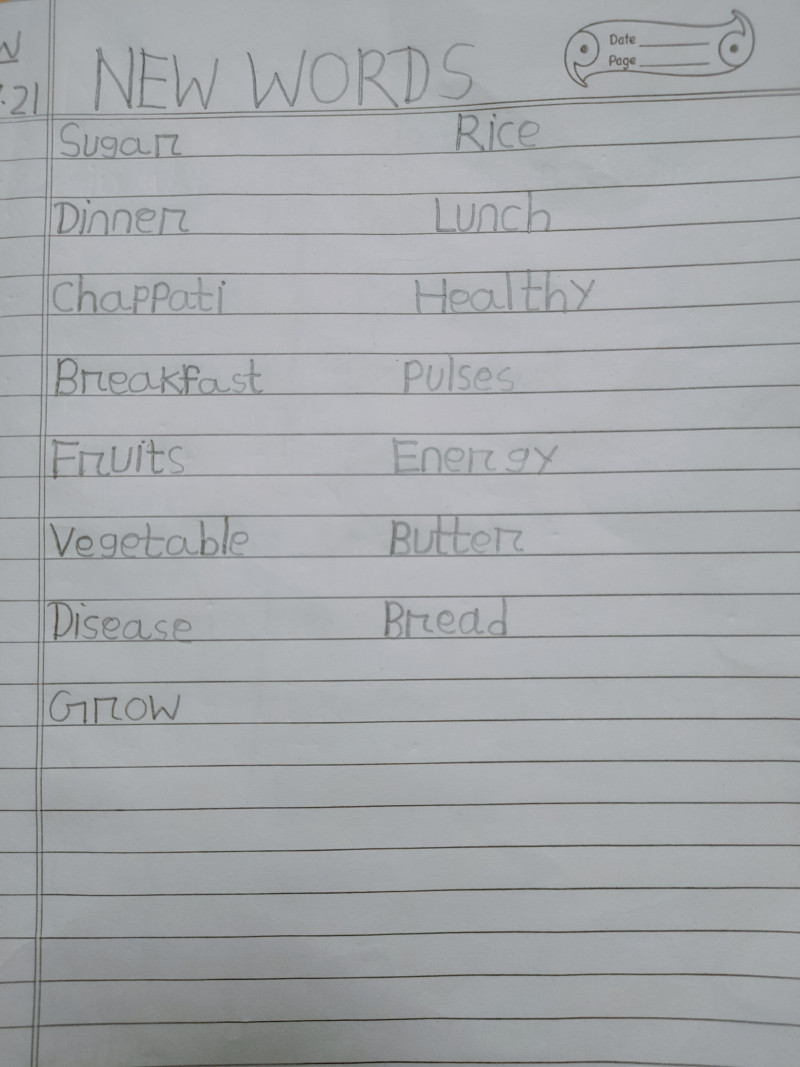 N
.21
NEW WORDS
Date
Page
Sugar Rice
Dinner Lunch
Chappati Healthy
Breakfast Pulses
Fruits Energy
Vegetable Butter
Disease Bread
Grow